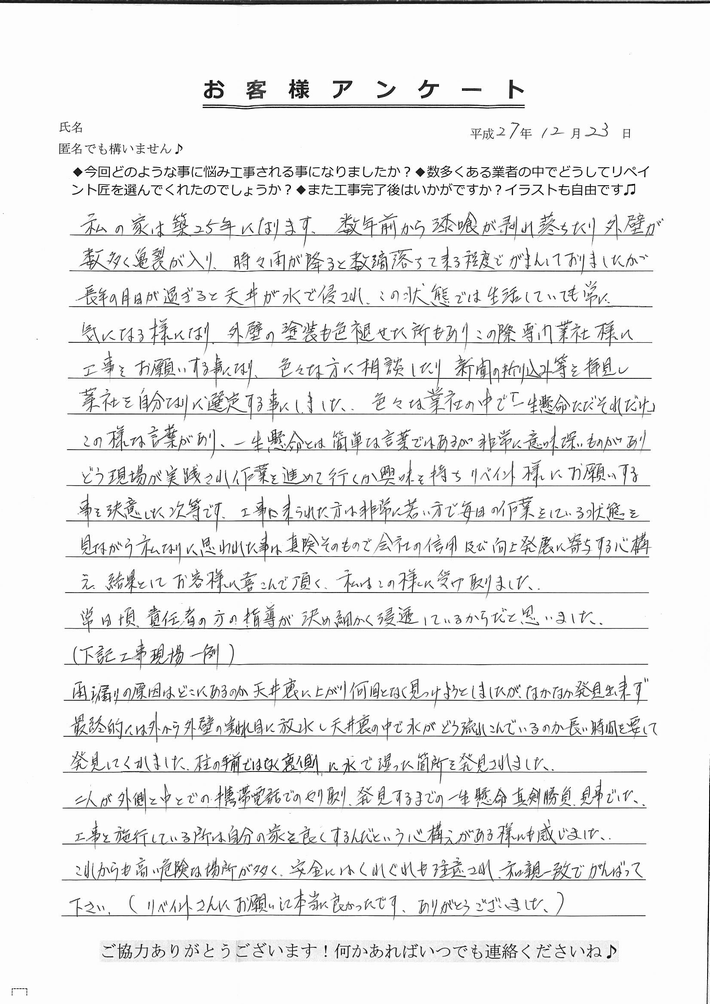 お客様アンケート
氏名
平成27年12月23日
匿名でも構いません♪
◆今回どのような事に悩み工事される事になりましたか？◆数多くある業者の中でどうしてリペイ
ント匠を選んでくれたのでしょうか？◆また工事完了後はいかがですか？イラストも自由です♫
私の家は築25年になります、数年前から漆喰が剥れ落ちたり外壁が
数多く亀裂が入り、時々雨が降ると数滴落ちて来る程度でがまんしておりましたが
長年の月日が過ぎると天井が水で侵され、この状態では生活していても常に
気になる様になり、外壁の塗装も色褪せた所もありこの際専門業社様に
工事をお願いする事になり、色々な方に相談したり新聞の折り込み等を拝見し
業社を自分なりに選定する事にしました、色々な業社の中で「一生懸命ただそれだけ」
この様な言葉があり、一生懸命とは簡単な言葉ではあるが非常に意味深いものがあり
どう現場が実践され作業を進めて行くか興味を持ちリペイント様にお願いする
事を決意した次第です、工事に来られた方は非常に若い方で毎日の作業をしている状態を
見ながら私なりに思われた事は真険そのもので会社の信用及び向上発展に寄与する心構
え、結果としてお客様に喜こんで頂く、私はこの様に受け取りました、
常日頃、責任者の方の指導が決め細かく浸透しているからだと思いました、
(下記工事現場一例)
雨漏りの原因はどこにあるのか天井裏に上がり何回となく見つけようとしましたが、なかなか発見出来ず
最終的には外から外壁の割れ目に放水し天井裏の中で水がどう流れこんでいるのか長い時間を要して
発見してくれました、柱の手前ではなく裏側に水で湿った箇所を発見されました、
二人が外側と中とでの携帯電話でのやり取り、発見するまでの一生懸命真剣勝負、見事でした、
工事を施行している所は自分の家を良くするんだという心構えがある様にも感じました、
これからも高い危険な場所が多く、安全にはくれぐれも注意され、和親一致でがんばって
下さい、(リペイントさんにお願いして本当に良かったです、ありがとうございました、)
ご協力ありがとうございます！何かあればいつでも連絡くださいね♪